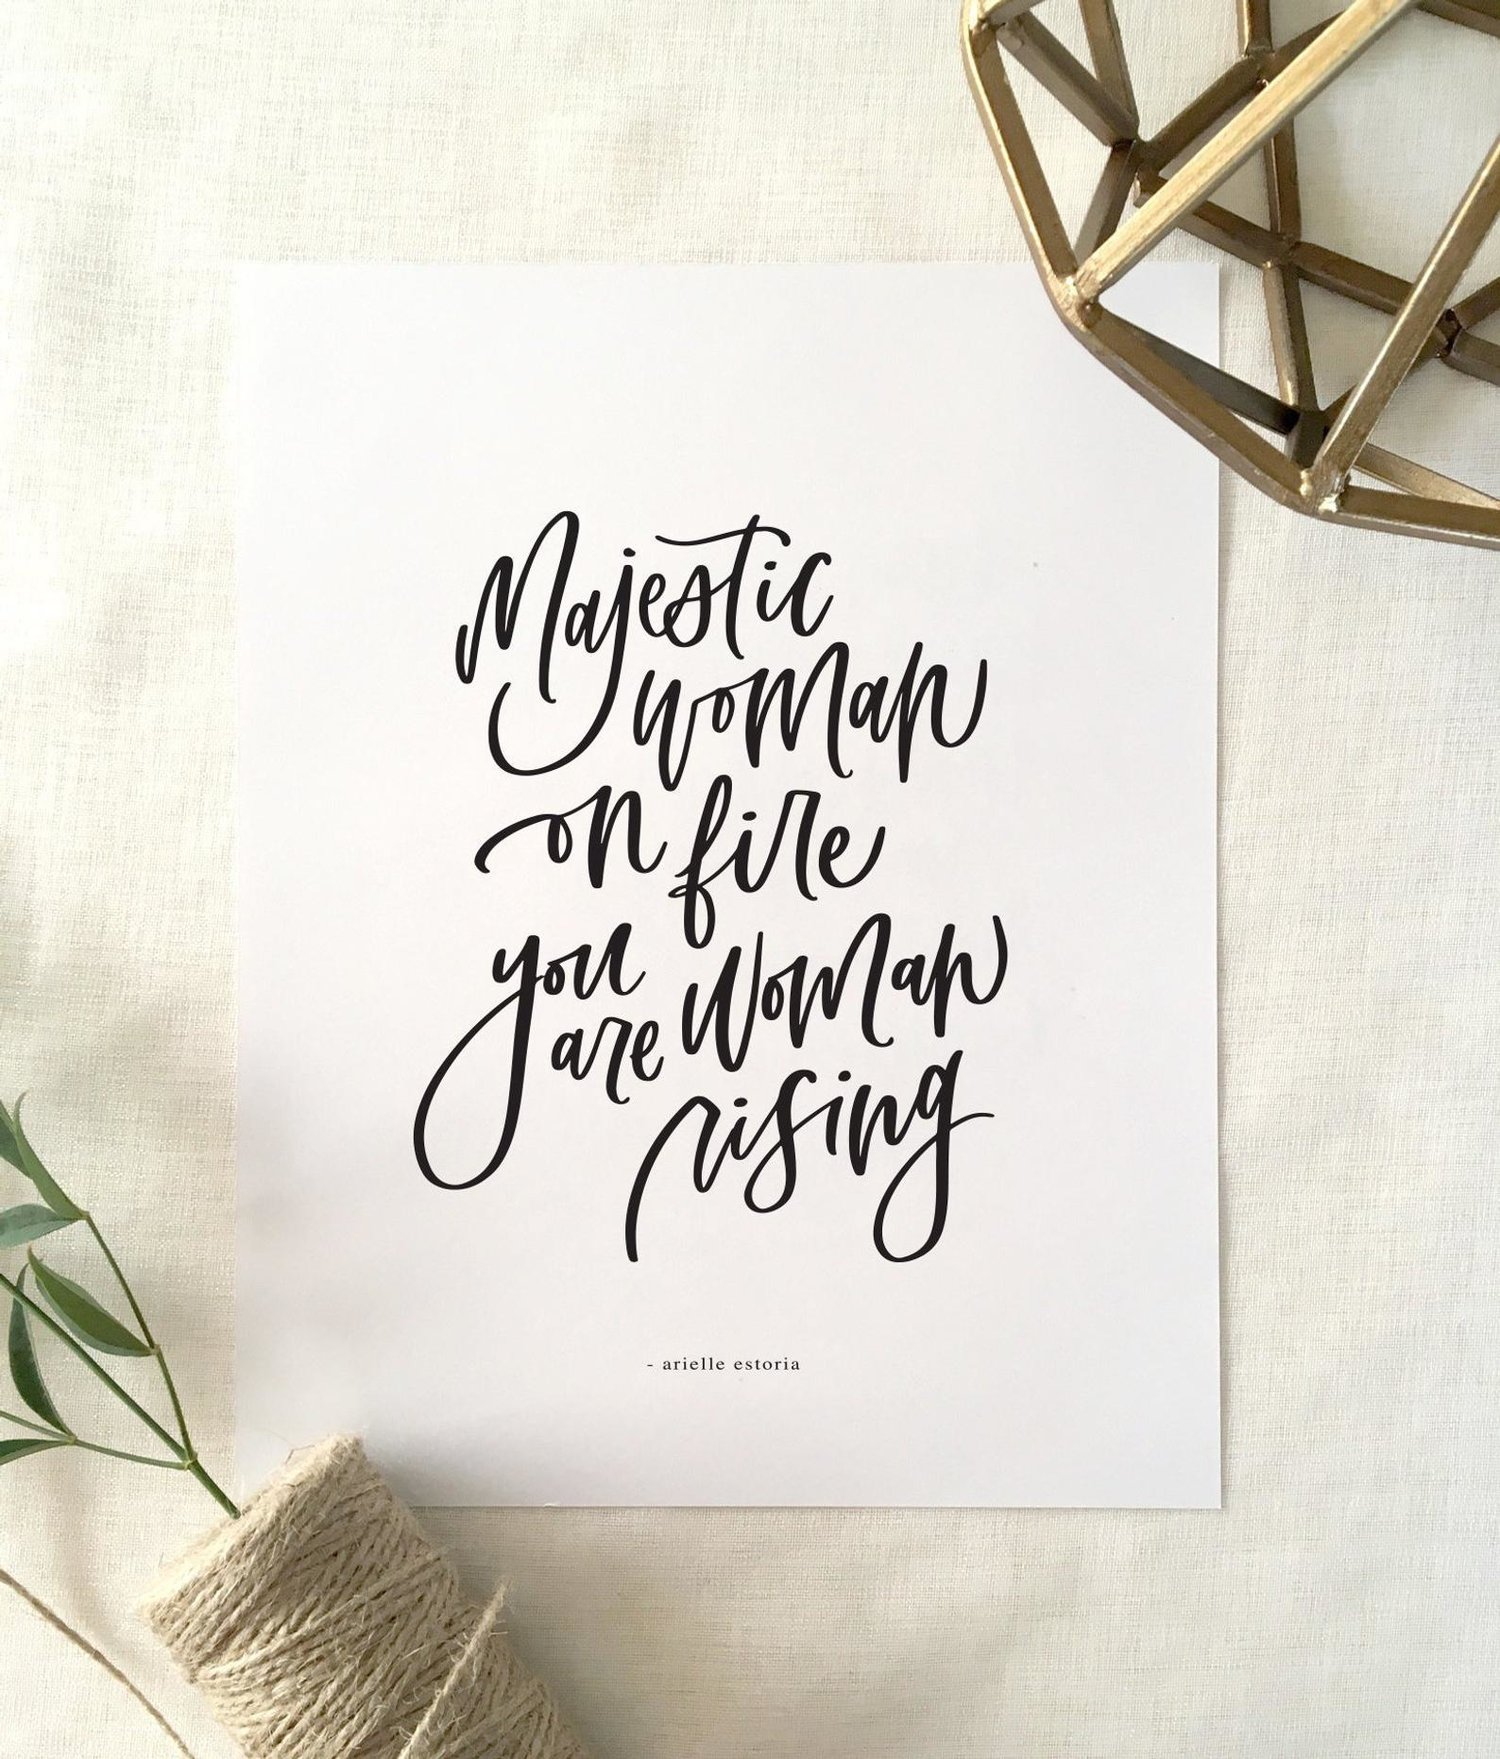 Majestic
woman
on fire
you
are Woman
rising
- arielle estoria